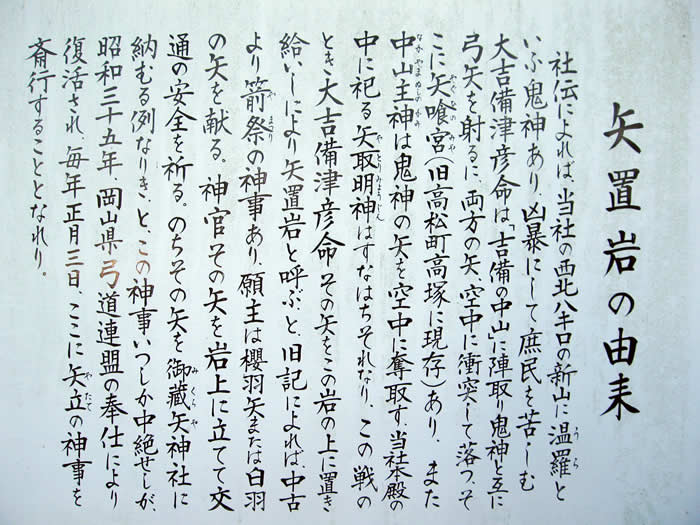 矢置岩の由来
社伝によれば、当社の西北八キロの新山に温羅と
いふ鬼神あり、凶暴にして庶民を苦しむ
大吉備津彦命は「吉備の中山」に陣取り鬼神と互に
弓矢を射るに、両方の矢空中に衝突して落つ、そ
こに矢喰宮(旧高松町高塚に現存)あり、また
中山主神は鬼神の矢を空中に奪取す、当社本殿の
中に祀る矢取明神はすなはちそれなり、この戦の
とき大吉備津彦命その矢をこの岩の上に置き
給いしにより矢置岩と呼ぶ、と、旧記によれば、中古
より箭祭の神事あり、願主は櫻羽矢または白羽
の矢を献る。神官その矢を岩上に立てて交
通の安全を祈る。のちその矢を御蔵矢神社に
納むる例なりき、と、この神事いつしか中絶せしが、
昭和三十五年、岡山県弓道連盟の奉仕により
復活され、毎年正月三日、ここに矢立の神事を
斎行することとなれり。